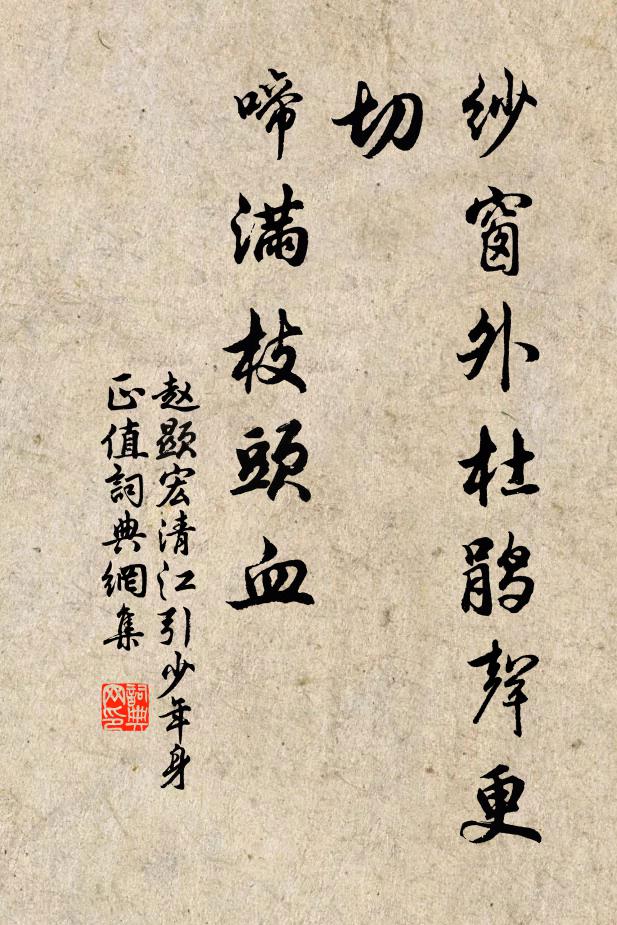 紗窗外杜鹃聲更
切
啼滿枝頭血
赵顯宏清江引少年身
正值詞典網集
詞典
网印